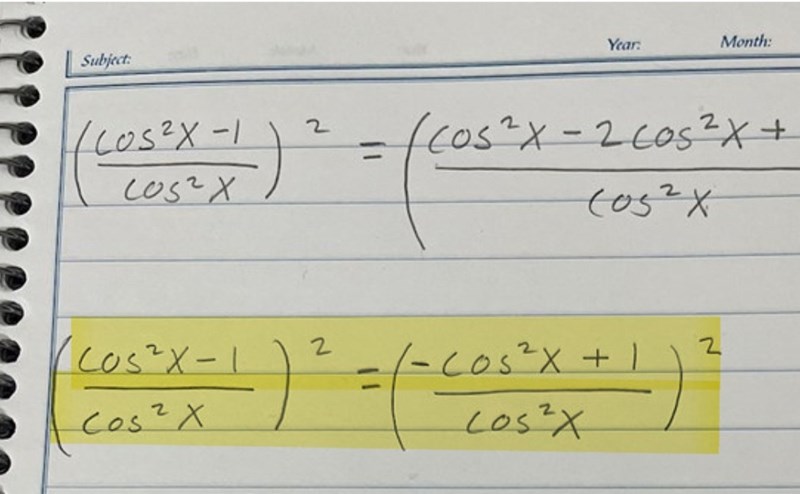 Subject: Year: Month:
(cos²x - 1 / cos²x)² = (cos²x - 2cos²x + / cos²x
(cos²x - 1 / cos²x)² = (-cos²x + 1 / cos²x)²